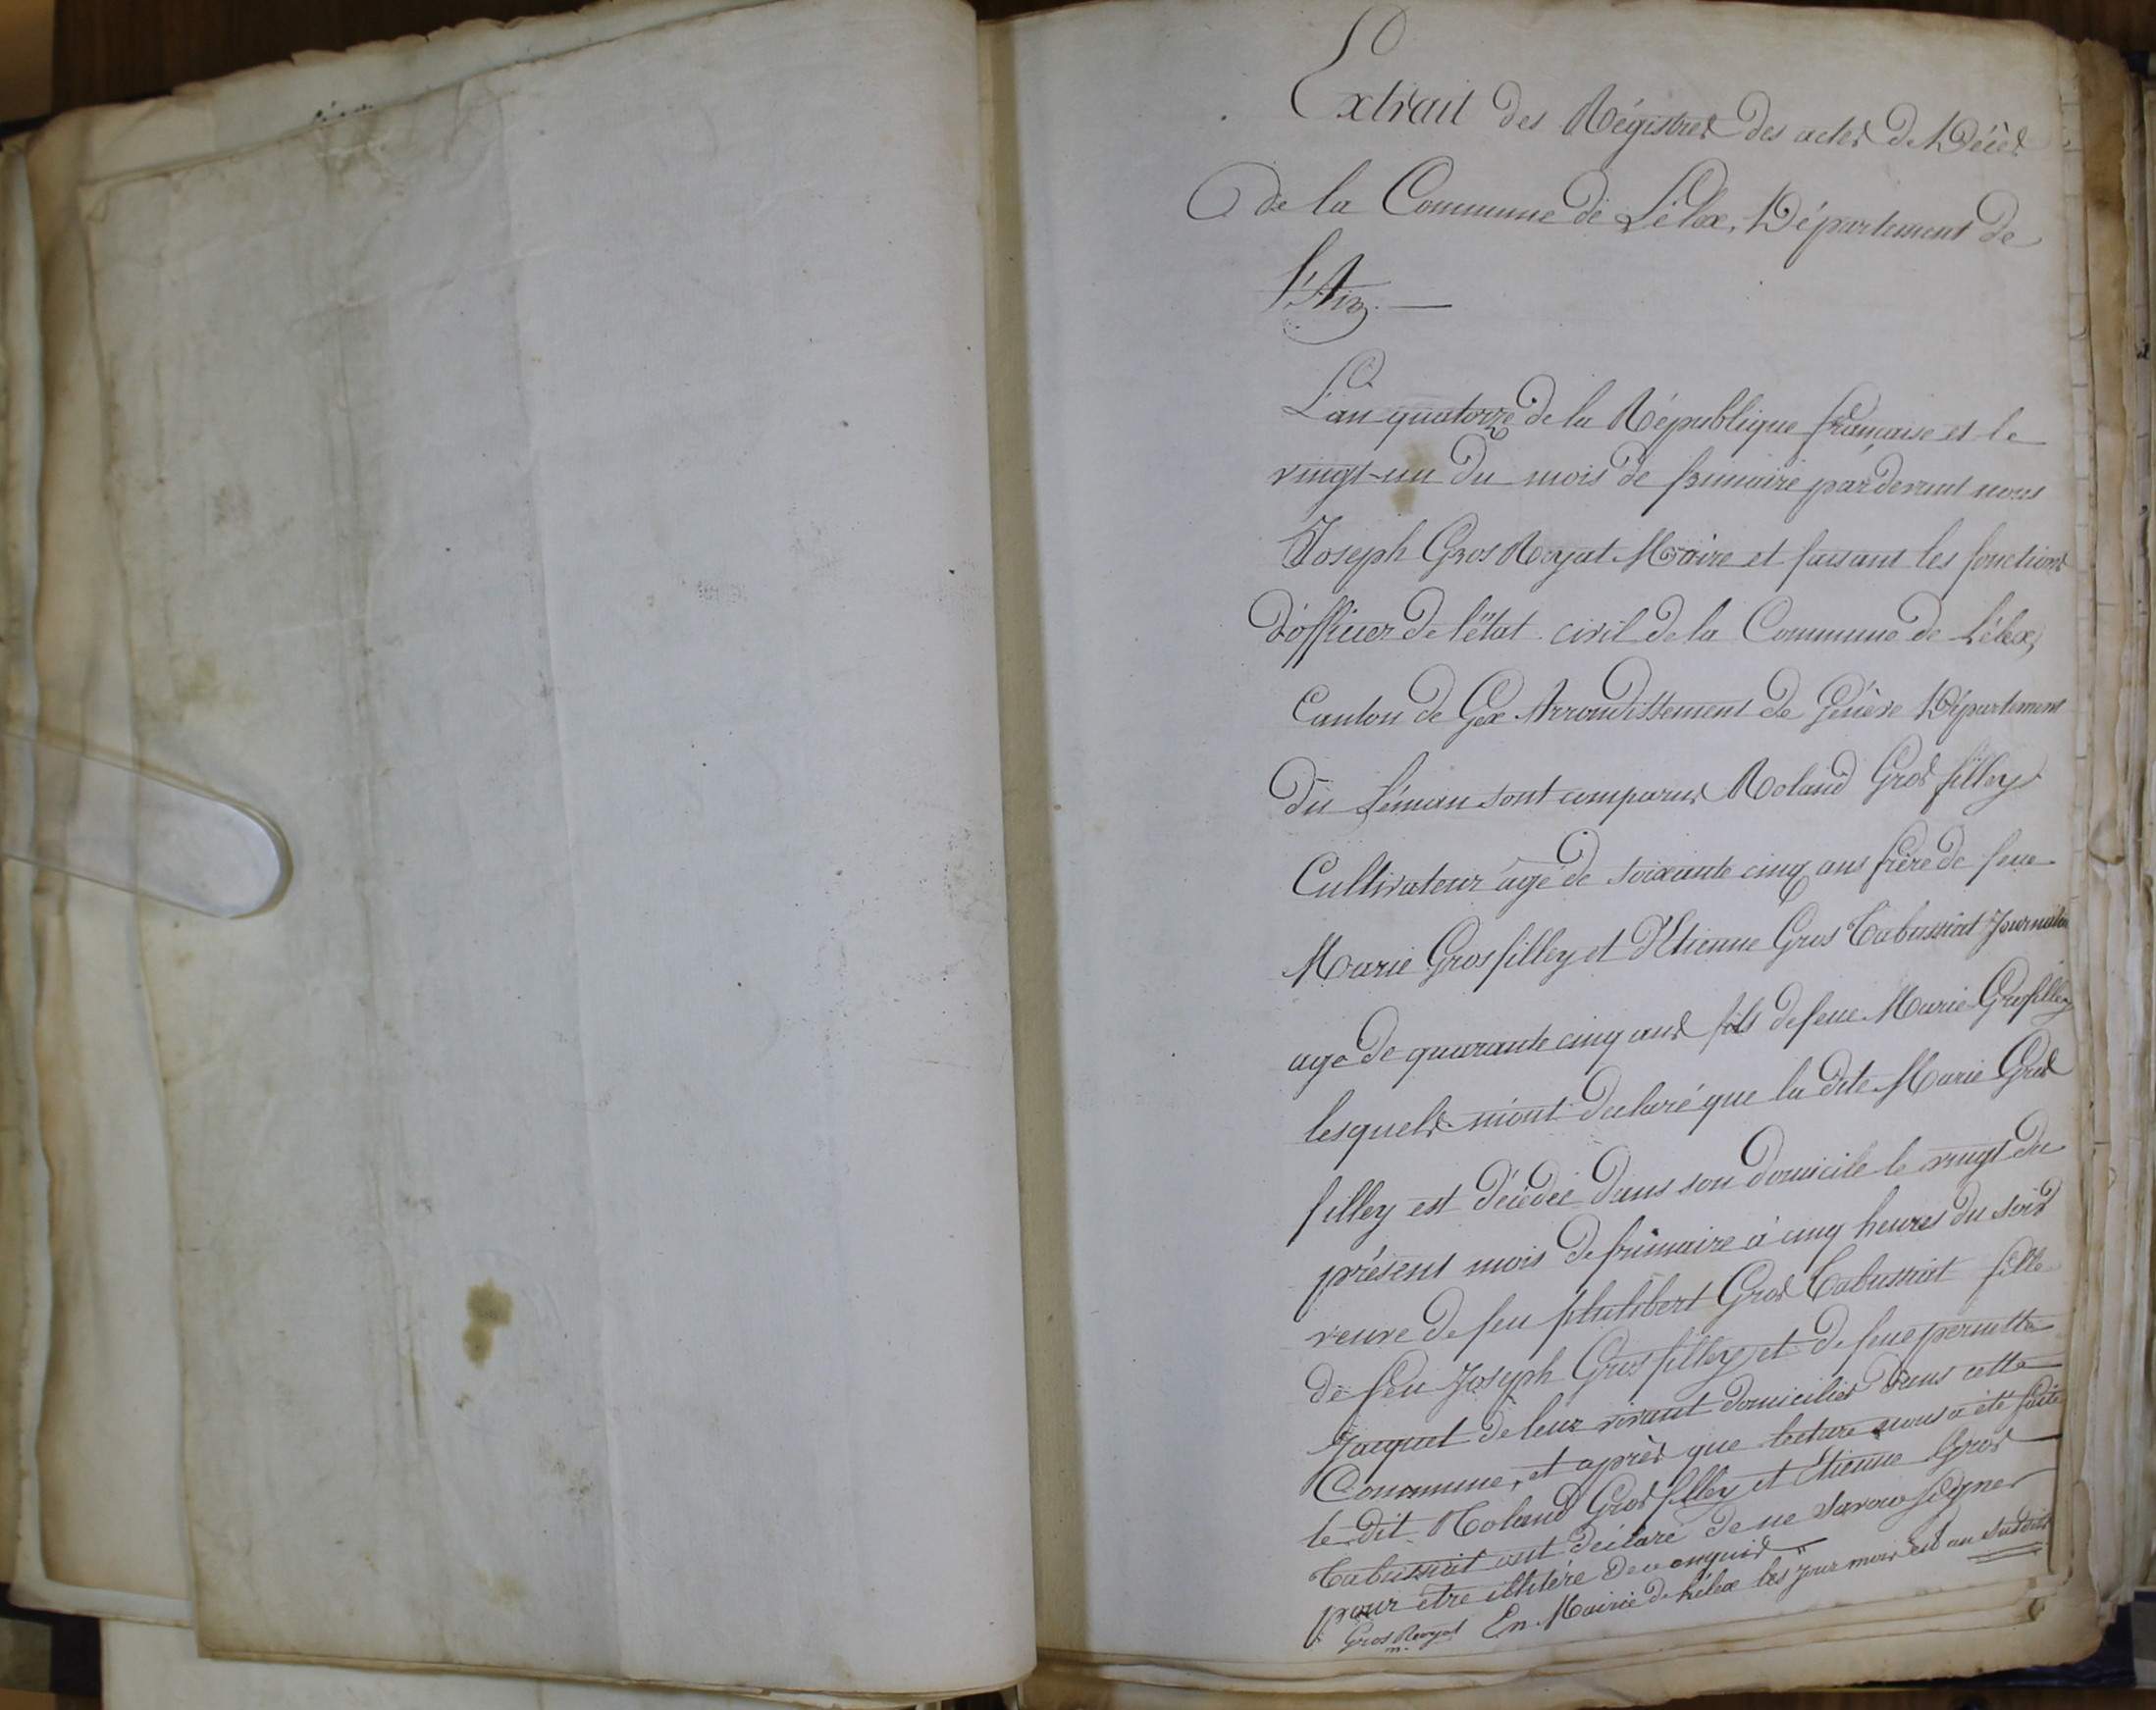 Extrait des Régistres des actes de Décès
de la Commune de Lélex, Département de
l'Ain. —
L'an quatorze de la République française et le
vingt-un du mois de frimaire pardevant nous
Joseph Gros Royat Maire et faisant les fonctions
d'officier de l'état civil de la Commune de Lélex,
Canton de Gex Arrondissement de Génève Département
du Léman sont comparus Roland Gros filley
Cultivateur agé de soixante cinq ans frère de feue
Marie Grosfilley et d'Etienne Gros Tabussiat Journalier
age de quarante cinq ans fils de feue Marie Grosfilley
lesquels m'ont déclaré que la dite Marie Gros
filley est décédée dans son domicile le vingt du
présent mois de frimaire à cinq heures du soir
veuve de feu philibert Gros Tabussiat fille
de feu Joseph Grosfilley et de feue pernette
Jacquet de leur vivant domiciliés dans cette
Commune, et après que lecture nous a été faite
le dit Roland Gros filley et Etienne Gros
Tabussiat ont déclaré de ne savoir signer
pour être illitéré de ce enquis "
Gros Royat En Mairie de Lélex les jour mois et an susdits
m.